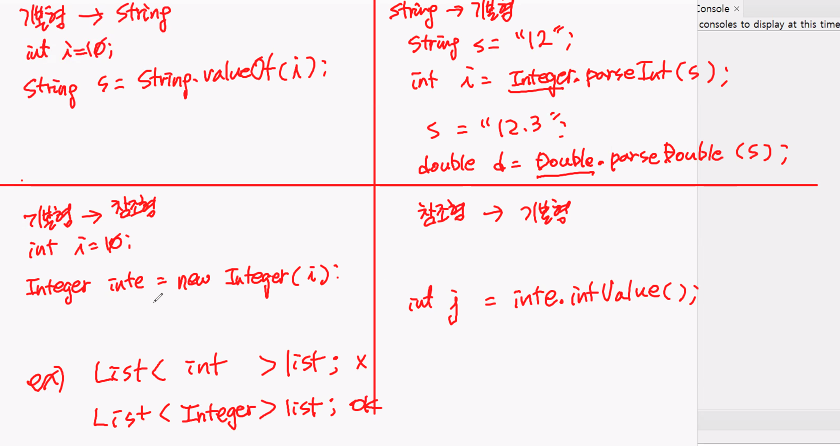 기본형 → String
int i=10;
String s = String.valueOf(i);
String → 기본형
String s = "12";
int i = Integer.parseInt(s);
s = "12.3";
double d = Double.parseDouble(s);
기본형 → 참조형
int i=10;
Integer inte = new Integer(i);
ex) List< int >list; x
List<Integer>list; ok
참조형 → 기본형
int j = inte.intValue();
Console ×
consoles to display at this time